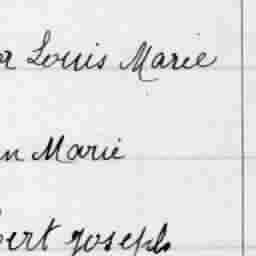 or Louis Marie
n Marie
bert joseph